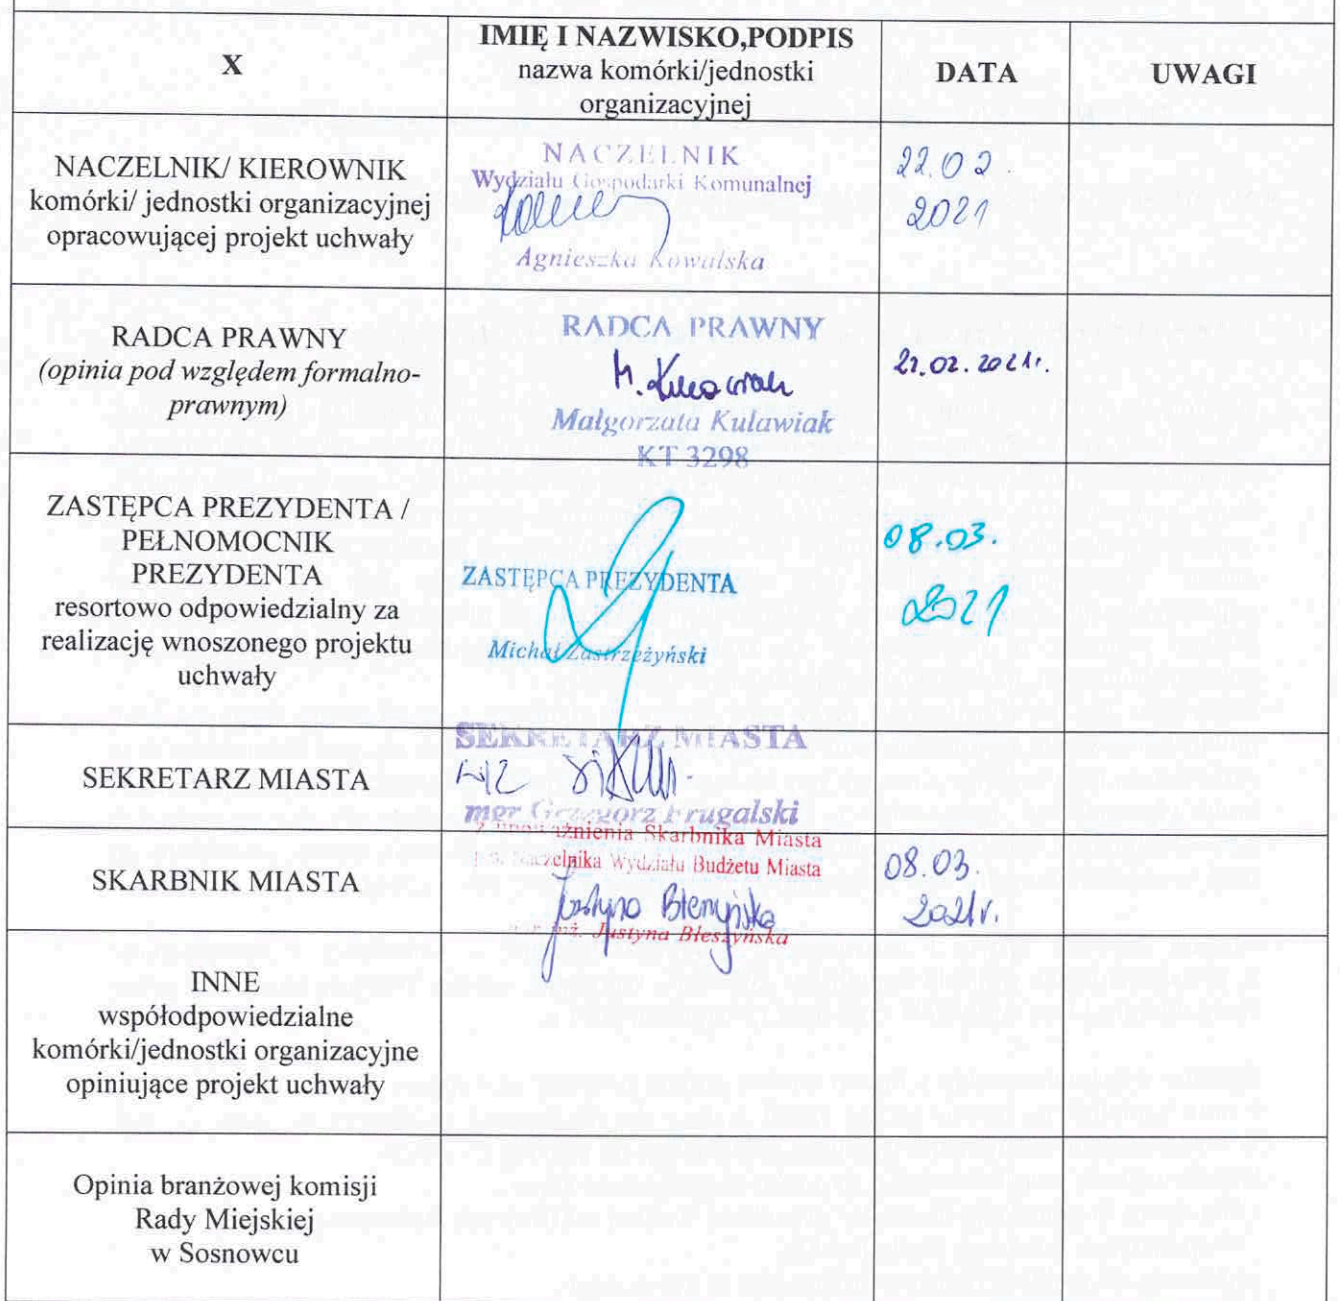 X
IMIĘ I NAZWISKO,PODPIS
nazwa komórki/jednostki
organizacyjnej
DATA
UWAGI
NACZELNIK/ KIEROWNIK
komórki/ jednostki organizacyjnej
opracowującej projekt uchwały
NACZELNIK
Wydziału Gospodarki Komunalnej
Agnieszka Kowalska
22.02.
2021
RADCA PRAWNY
(opinia pod względem formalno-
prawnym)
RADCA PRAWNY
Małgorzata Kulawiak
KT 3298
22.02.2021r.
ZASTĘPCA PREZYDENTA /
PEŁNOMOCNIK
PREZYDENTA
resortowo odpowiedzialny za
realizację wnoszonego projektu
uchwały
ZASTĘPCA PREZYDENTA
Michał Zastrzeżyński
08.03.
2021
SEKRETARZ MIASTA
SEKRETARZ MIASTA
mgr Grzegorz Frugalski
SKARBNIK MIASTA
z upoważnienia Skarbnika Miasta
Naczelnika Wydziału Budżetu Miasta
Justyna Błeszyńska
inż. Justyna Błeszyńska
08.03.
2021r.
INNE
współodpowiedzialne
komórki/jednostki organizacyjne
opiniujące projekt uchwały
Opinia branżowej komisji
Rady Miejskiej
w Sosnowcu